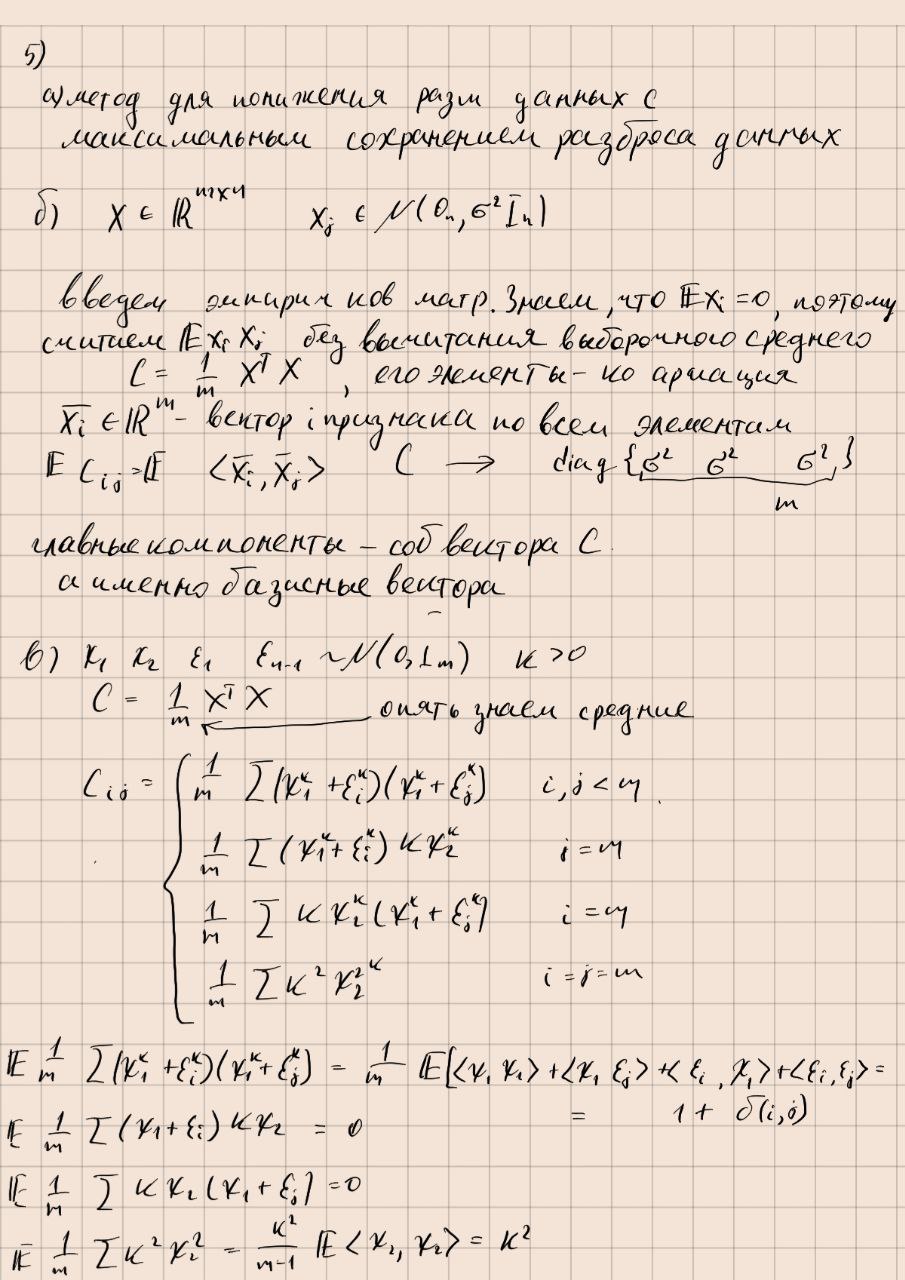 5)
а) метод для понижения разм данных с
максимальным сохранением разброса данных
б) X ∈ ℝ^{m×n} x_j ∈ N(0_n, σ² I_n)
введем эмпирич ков матр. Знаем, что 𝔼x_i = 0, поэтому
считаем 𝔼x_i x_j без вычитания выборочного среднего
C = 1/m X^T X , его элементы - ковариация
x̄_i ∈ ℝ^m - вектор i признака по всем элементам
𝔼 C_{ij} = 𝔼 <x̄_i, x̄_j> C → diag {σ² σ² σ²,}
m
главные компоненты - соб вектора C.
а именно базисные вектора
в) x_1 x_2 ε_1 ε_{n-1} ~ N(0, I_m) K > 0
C = 1/m X^T X
опять знаем средние
C_{ij} = { 1/m ∑(x_1^k + ε_i^k)(x_1^k + ε_j^k) i, j < n
1/m ∑(x_1^k + ε_i^k) K x_2^k j = n
1/m ∑ K x_2^k (x_1^k + ε_j^k) i = n
1/m ∑ K² x_2^{2 k} i = j = m
𝔼 1/m ∑(x_1^k + ε_i^k)(x_1^k + ε_j^k) = 1/m 𝔼[<x_1 x_1> + <x_1 ε_j> + <ε_i, x_1> + <ε_i, ε_j> =
= 1 + δ(i,j)
𝔼 1/m ∑(x_1 + ε_i) K x_2 = 0
𝔼 1/m ∑ K x_2 (x_1 + ε_j) = 0
𝔼 1/m ∑ K² x_2² = K²/(m-1) 𝔼 <x_2, x_2> = K²